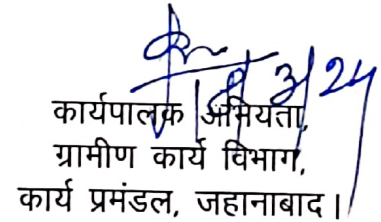 कार्यपालक अभियंता,
ग्रामीण कार्य विभाग,
कार्य प्रमंडल, जहानाबाद।